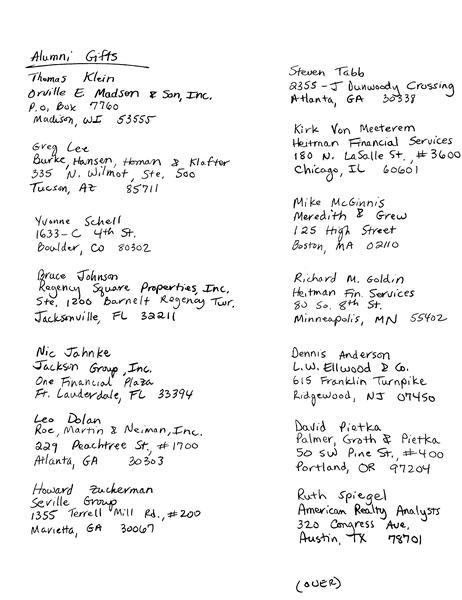 Alumni Gifts
Thomas Klein
Orville E Madsen & Son, Inc.
P.O. Box 7760
Madison, WI 53555
Greg Lee
Burke, Hansen, Homan & Klafter
335 N. Wilmot, Ste. 500
Tucson, AZ 85711
Yvonne Schell
1633-C 4th St.
Boulder, CO 80302
Bruce Johnson
Regency Square Properties, Inc.
Ste. 1200 Barnett Regency Twr.
Jacksonville, FL 32211
Nic Jahnke
Jackson Group, Inc.
One Financial Plaza
Ft. Lauderdale, FL 33394
Leo Dolan
Roe, Martin & Neiman, Inc.
229 Peachtree St., #1700
Atlanta, GA 30303
Howard Zuckerman
Seville Group
1355 Terrell Mill Rd., #200
Marietta, GA 30067
Steven Tabb
2355-J Dunwoody Crossing
Atlanta, GA 30338
Kirk Von Meeterem
Heitman Financial Services
180 N. LaSalle St., #3600
Chicago, IL 60601
Mike McGinnis
Meredith & Grew
125 High Street
Boston, MA 02110
Richard M. Goldin
Heitman Fin. Services
80 So. 8th St.
Minneapolis, MN 55402
Dennis Anderson
L.W. Ellwood & Co.
615 Franklin Turnpike
Ridgewood, NJ 07450
David Pietka
Palmer, Groth & Pietka
50 SW Pine St., #400
Portland, OR 97204
Ruth Spiegel
American Realty Analysts
320 Congress Ave.
Austin, TX 78701
(OVER)